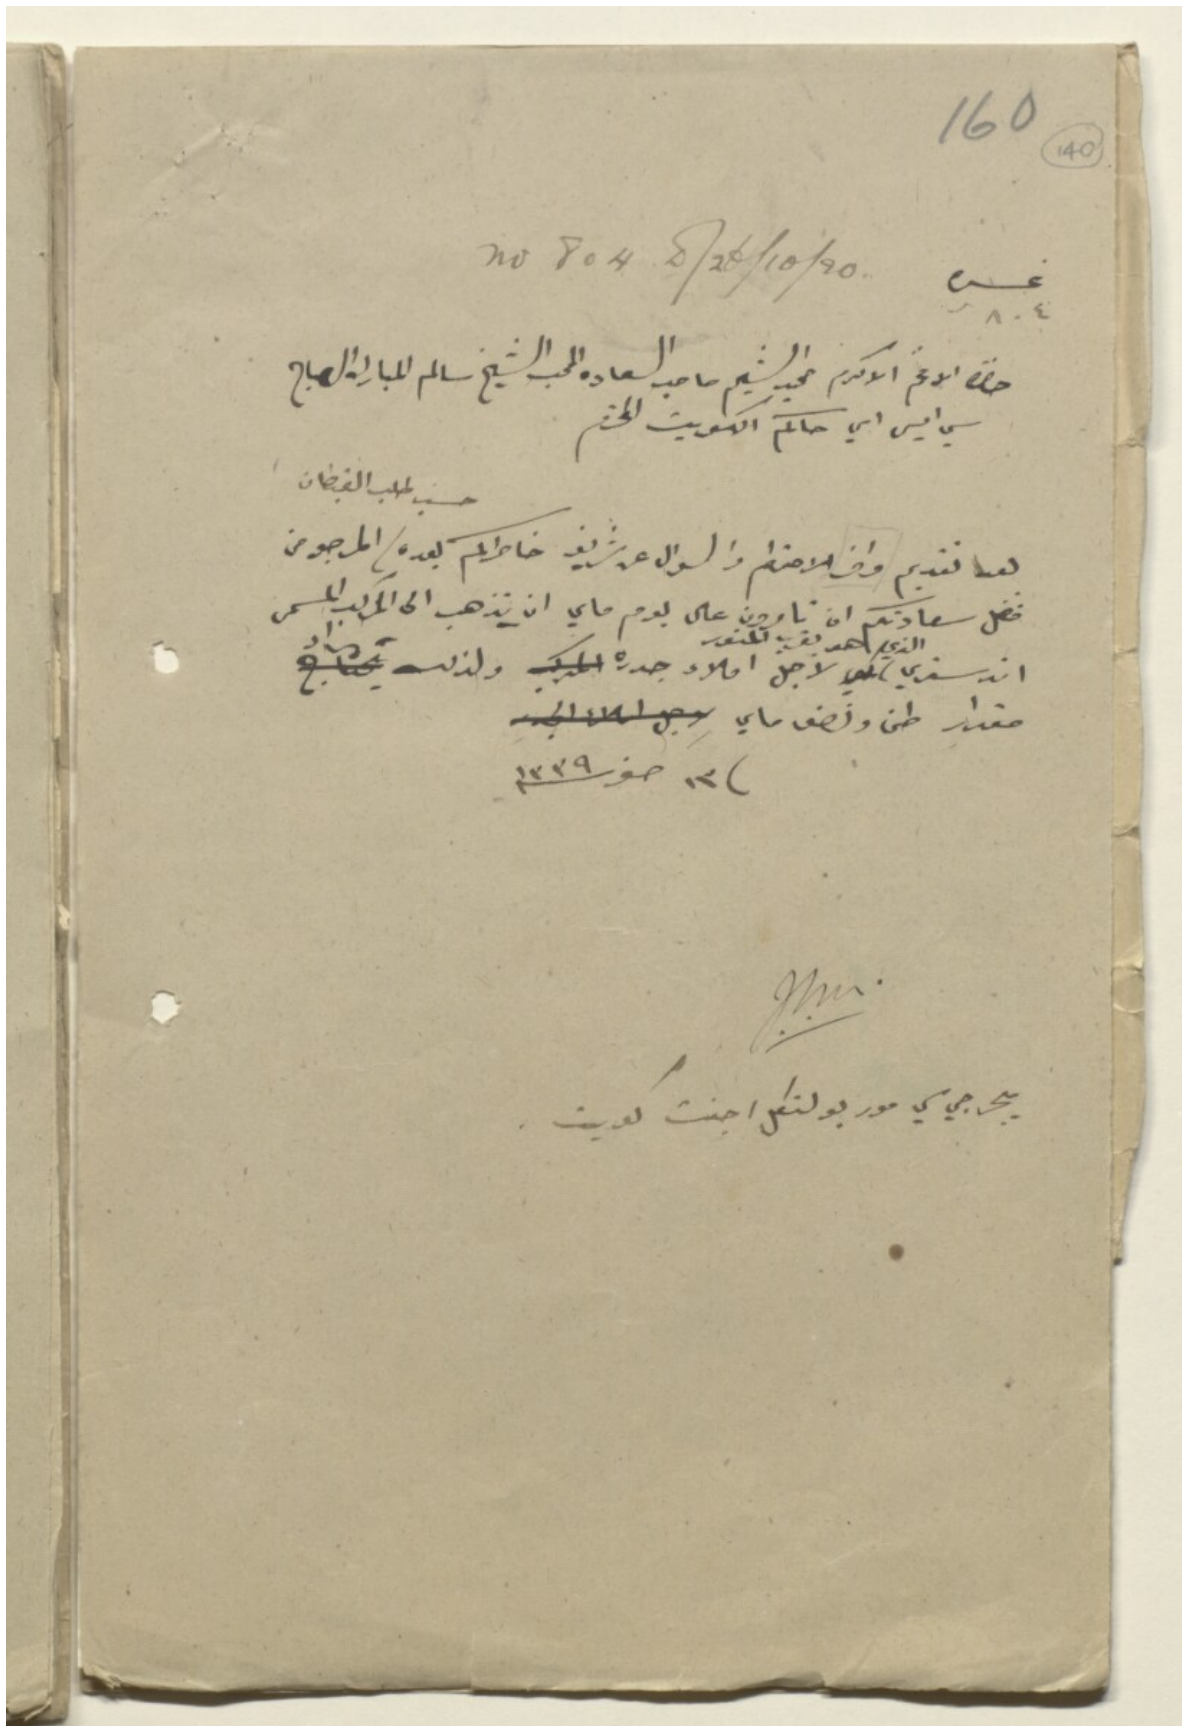 160
140
no 804 D/26/10/20.
نمبر
٨٠٤
حضرة الافخم الاكرم حميد الشيم صاحب السعاده المحب الشيخ سالم المبارك الصباح
سي ايس اي حاكم الكويت المحترم
حسب طلب القبطان
بعد تقديم وافر الاحترام والسوال عن شريف خاطركم بعده المرجو من
فضل سعادتكم ان تامرون على بوم ماي ان يذهب الى المركب المسمى
الذي هو بقرب
لاجل املاء جدرة المركب ولذلك
مقدار طن ونصف ماي
١٣ صفر ١٣٣٩
J.C.M.
ميجر جي سي مور بولتكل اجنت كويت